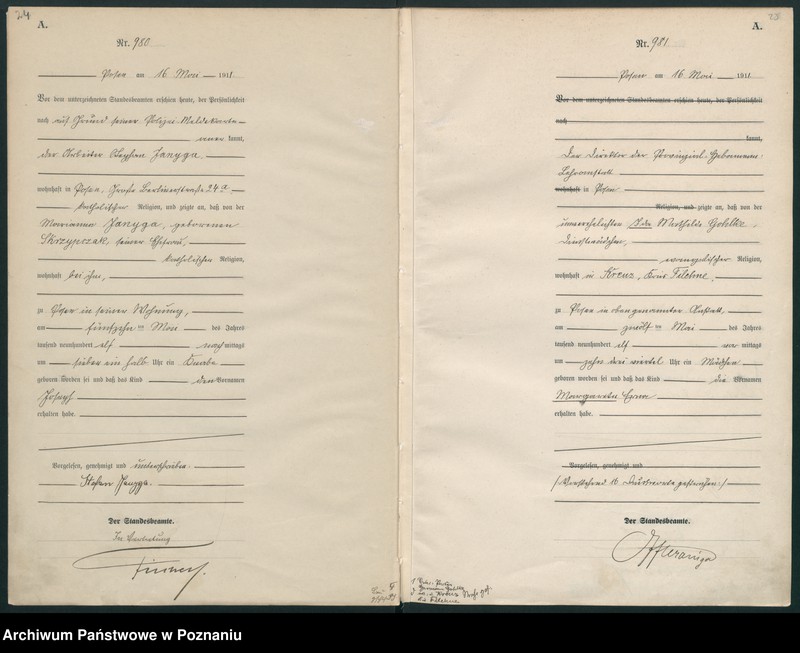 24
A.
Nr. 980
Posen am 16 Mai 1911
Vor dem unterzeichneten Standesbeamten erschien heute, der Persönlichkeit
nach auf Grund seiner Polizei-Meldekarte
kannt,
der Arbeiter Stephan Janyga
wohnhaft in Posen, Große Berlinerstraße 24a
katholischer Religion, und zeigte an, daß von der
Marianna Janyga, geborenen
Skrzypczak, seiner Ehefrau,
katholischen Religion,
wohnhaft bei ihm,
zu Posen in seiner Wohnung,
am fünfzehn ten Mai des Jahres
tausend neunhundert elf nachmittags
um sieben ein halb Uhr ein Knabe
geboren worden sei und daß das Kind den Vornamen
Joseph
erhalten habe.
Vorgelesen, genehmigt und unterschrieben
Stefan Janyga.
Der Standesbeamte.
In Vertretung
A.
Nr. 981
Posen am 16 Mai 1911
Vor dem unterzeichneten Standesbeamten erschien heute, der Persönlichkeit
nach
kannt,
Der Direktor der Provinzial-Hebammen-
Lehranstalt
wohnhaft in Posen
Religion, und zeigte an, daß von der
unverehelichten Ida Mathilde Gohlke,
Dienstmädchen,
evangelischer Religion,
wohnhaft in Kreuz, Kreis Filehne,
zu Posen in obengenannter Anstalt,
am zwölf ten Mai des Jahres
tausend neunhundert elf vormittags
um zehn drei viertel Uhr ein Mädchen
geboren worden sei und daß das Kind die Vornamen
Margarete Erna
erhalten habe.
Vorgelesen, genehmigt und
(Vorstehend 16 Druckworte gestrichen.)
Der Standesbeamte.
Archiwum Państwowe w Poznaniu